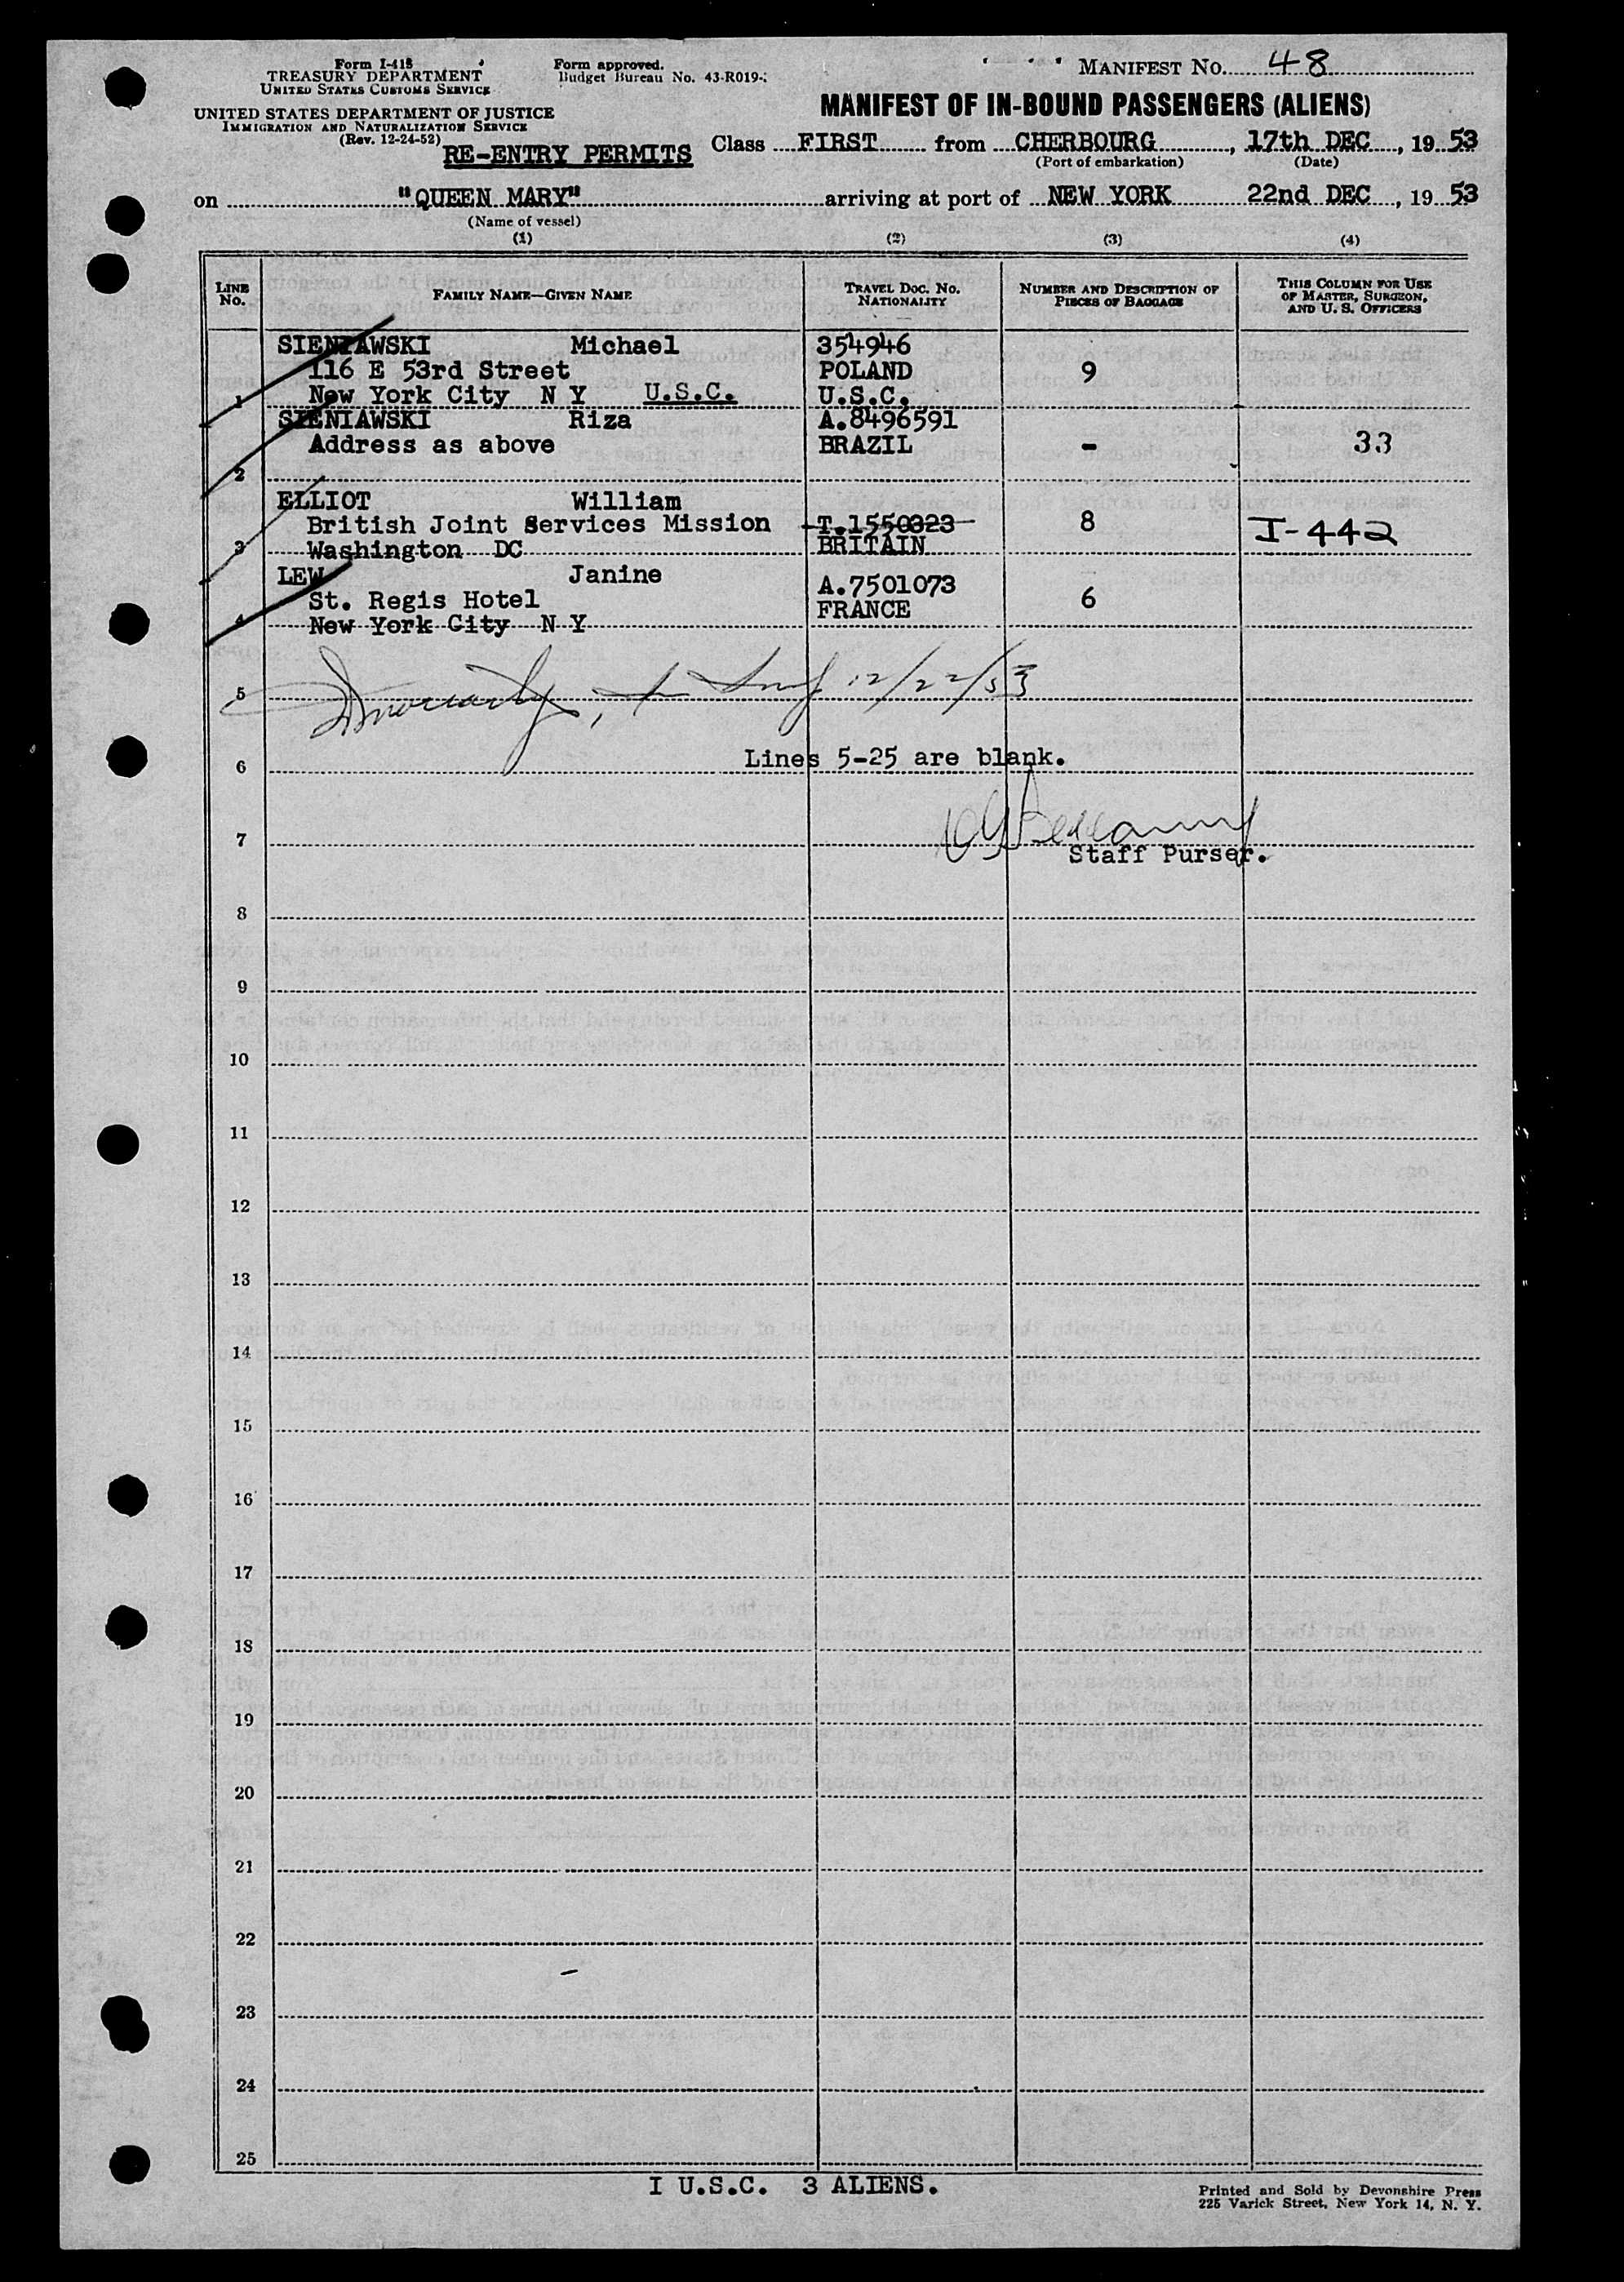 Form I-418
TREASURY DEPARTMENT
UNITED STATES CUSTOMS SERVICE
UNITED STATES DEPARTMENT OF JUSTICE
IMMIGRATION AND NATURALIZATION SERVICE
(Rev. 12-24-52)
Form approved.
Budget Bureau No. 43-R019-
MANIFEST NO. 48
MANIFEST OF IN-BOUND PASSENGERS (ALIENS)
RE-ENTRY PERMITS
Class FIRST from CHERBOURG, 17th DEC, 19 53
(Port of embarkation) (Date)
on "QUEEN MARY" arriving at port of NEW YORK 22nd DEC, 19 53
(Name of vessel)
(1) (2) (3) (4)
LINE NO. FAMILY NAME—GIVEN NAME TRAVEL DOC. NO. NATIONALITY NUMBER AND DESCRIPTION OF PIECES OF BAGGAGE THIS COLUMN FOR USE OF MASTER, SURGEON, AND U. S. OFFICERS
SIENIAWSKI Michael 354946
116 E 53rd Street POLAND 9
1 New York City N Y U.S.C. U.S.C.
SIENIAWSKI Riza A.8496591
Address as above BRAZIL - 33
2
ELLIOT William
British Joint Services Mission T.1550323 8 I-442
3 Washington DC BRITAIN
LEW Janine A.7501073
St. Regis Hotel FRANCE 6
4 New York City N Y
5 12/22/53
Lines 5-25 are blank.
6
7 Staff Purser.
8
9
10
11
12
13
14
15
16
17
18
19
20
21
22
23
24
25
I U.S.C. 3 ALIENS.
Printed and Sold by Devonshire Press
225 Varick Street, New York 14, N. Y.